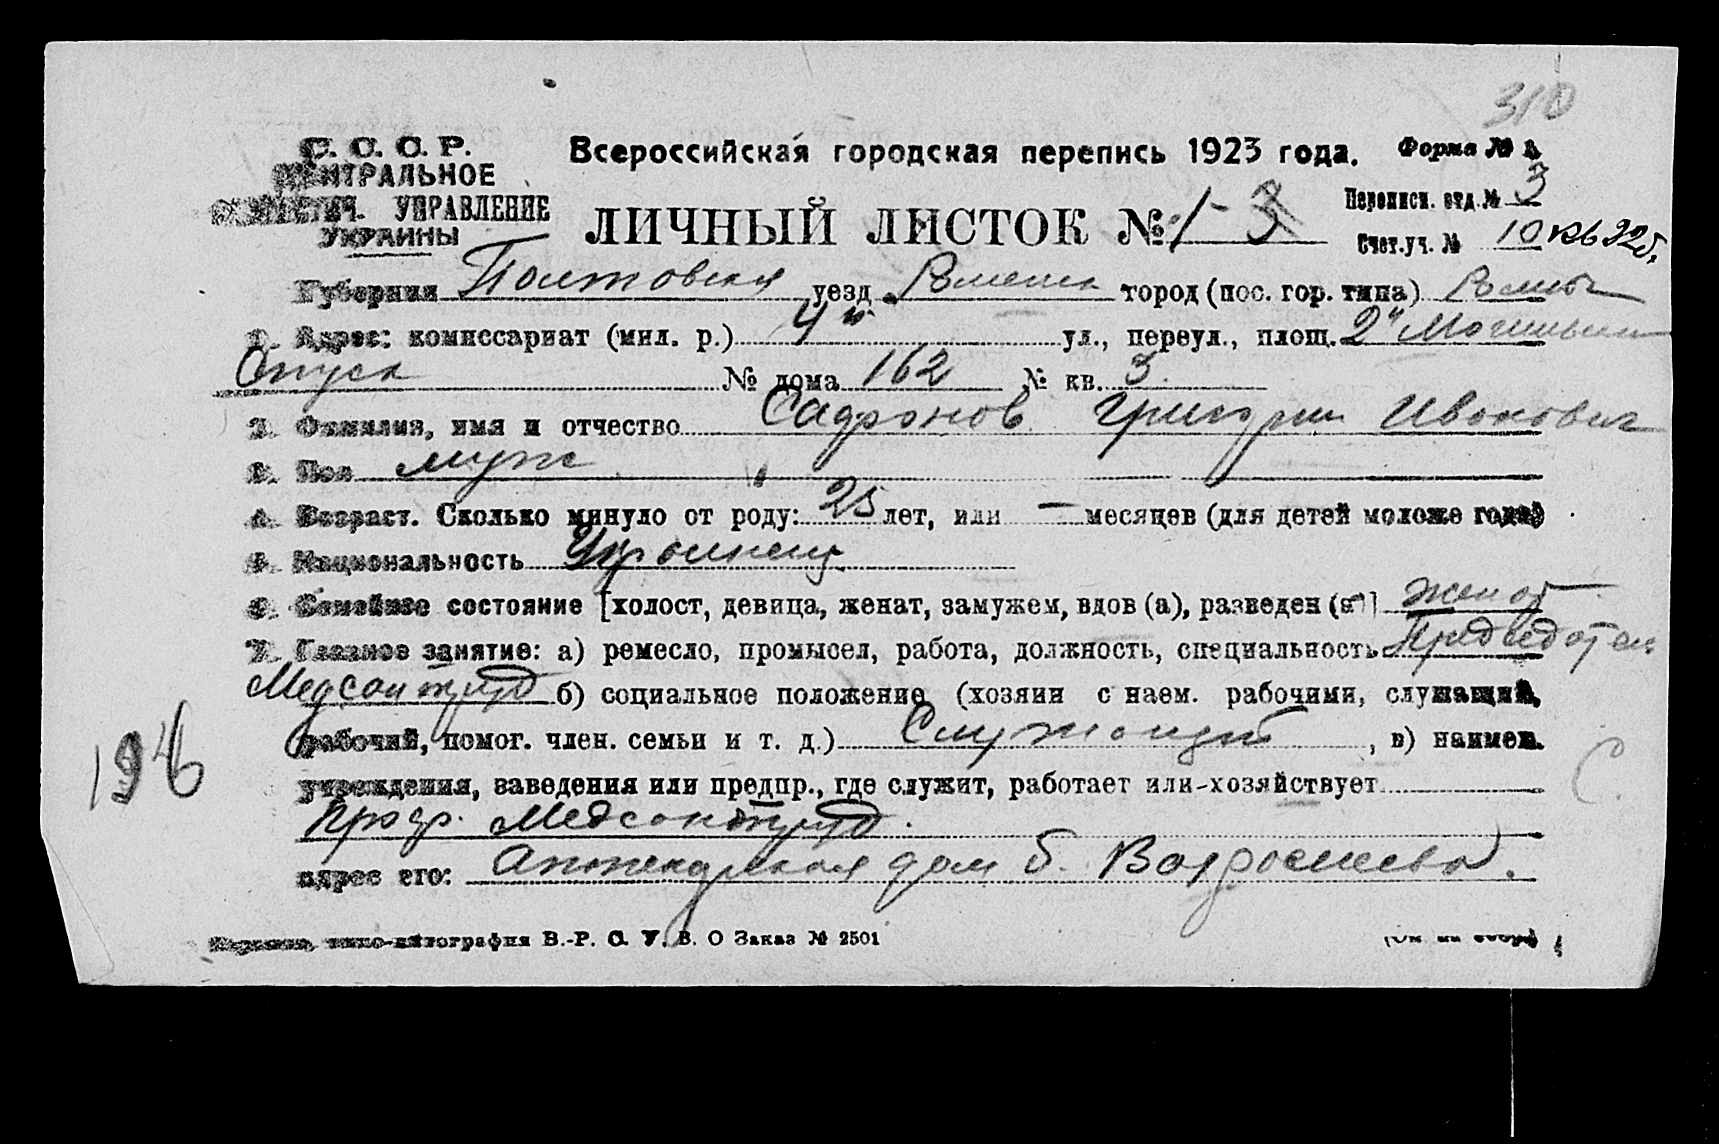 310
С. С. С. Р.
ЦЕНТРАЛЬНОЕ
СТАТИСТИЧ. УПРАВЛЕНИЕ
УКРАИНЫ
Всероссийская городская перепись 1923 года. Форма № 1.
ЛИЧНЫЙ ЛИСТОК № 1-3
Переписн. отд. № 3
Счет. уч. № 10 кв 325
Губерния Полтовская уезд Роменск город (пос. гор. типа) Ромны
1. Адрес: комиссариат (мил. р.) 4й ул., переул., площ. 2й
№ дома 162 № кв. 3
2. Фамилия, имя и отчество Сафронов Григорий Иванович
3. Пол муж
4. Возраст. Сколько минуло от роду: 25 лет, или — месяцев (для детей моложе года)
5. Национальность Украинец
6. Семейное состояние [холост, девица, женат, замужем, вдов (а), разведен (а)] женат
7. Главное занятие: а) ремесло, промысел, работа, должность, специальность Председател
Медсантруд б) социальное положение (хозяин с наем. рабочими, служащий,
рабочий, помог. член. семьи и т. д.) Служащий, в) наимен.
учреждения, заведения или предпр., где служит, работает или-хозяйствует
Медсантруд.
адрес его: Аптекарская дом б.
196
С
типо-литография В.-Р. С. У. В. О Заказ № 2501